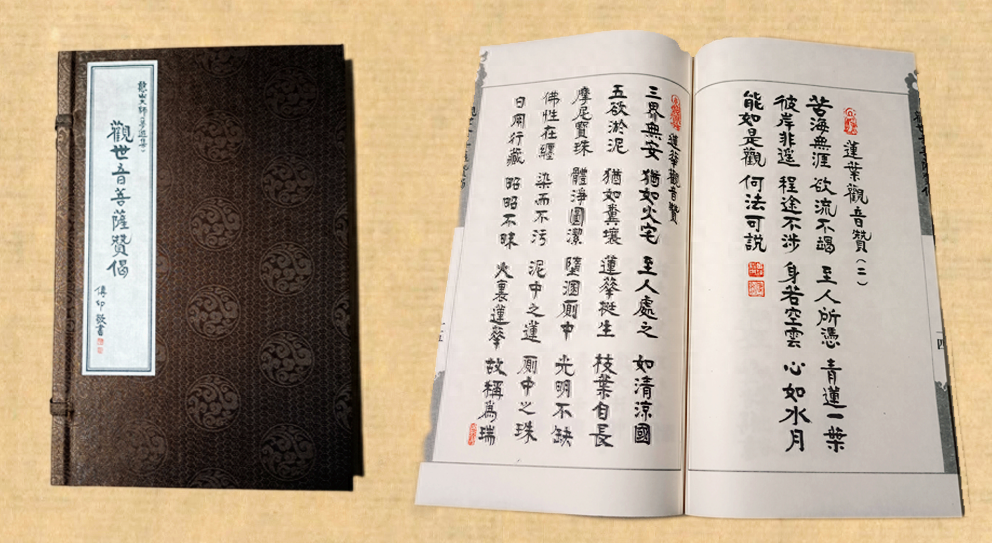 憨山大師夢遊集
觀世音菩薩贊偈
傳印敬書
蓮葉觀音贊(二)
苦海無涯 欲流不竭 至人所憑 青蓮一葉
彼岸非遥 程途不涉 身若空雲 心如水月
能如是觀 何法可說
一四
蓮華觀音贊
三界無安 猶如火宅 至人處之 如清涼國
五欲淤泥 猶如糞壤 蓮華挺生 枝葉自長
摩尼寶珠 體淨圓潔 墮溷廁中 光明不缺
佛性在纏 染而不污 泥中之蓮 廁中之珠
日用行藏 昭昭不昧 火裏蓮華 故稱為瑞
一五